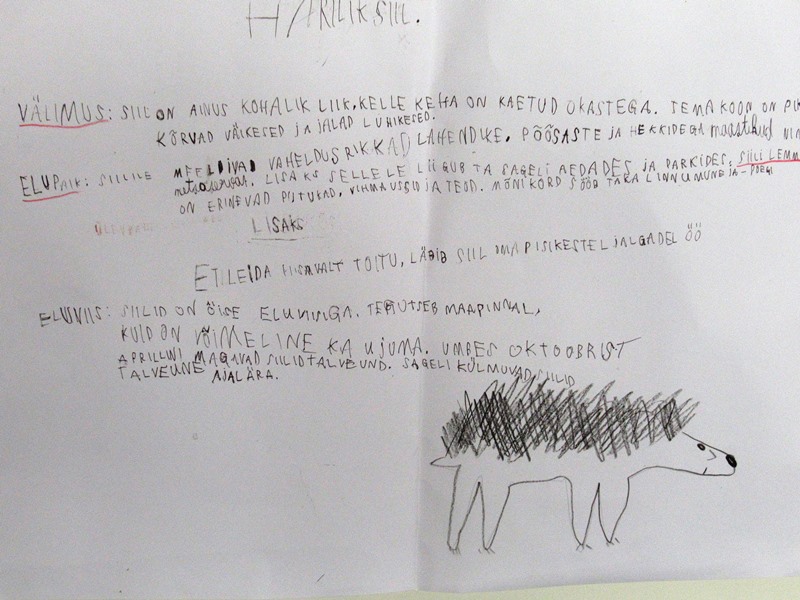 HARILIK SIIL.
VÄLIMUS: SIIL ON AINUS KOHALIK LIIK, KELLE KEHA ON KAETUD OKASTEGA. TEMA KOON ON
KÕRVAD VÄIKESED JA JALAD LÜHIKESED.
ELUPAIK: SIILILE MEELDIVAD VAHELDUSRIKKAD LAHENDUKE, PÕÕSASTE JA HEKKIDEGA maastikud
metsaservas. LISAKS SELLELE LIIGUB TA SAGELI AEDADES JA PARKIDES. SIILI LEMM
ON ERINEVAD PUTUKAD, VIHMAUSSID JA TEOD. MÕNIKORD SÖÖB TA KA LINNUMUNE JA -POEGI
LISAKS
ET LEIDA PIISAVALT TOITU, LÄBIB SIIL OMA PISIKESTEL JALGADEL ÖÖ
ELUVIIS: SIILID ON ÖISE ELUVIISIGA. TEGUTSEB MAAPINNAL,
KUID ON VÕIMELINE KA UJUMA. UMBES OKTOOBRIST
APRILLINI MAGAVAD SIILID TALVEUND. SAGELI KÜLMUVAD SIILID
TALVEUNE AJAL ÄRA.